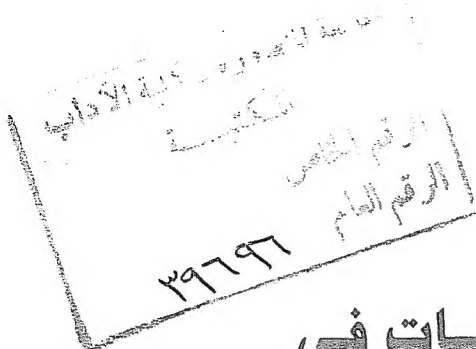 جامعة المنصورة - كلية الآداب
المكتبـــة
الرقم الخاص
الرقم العام
٣٩٦٩٦
ـات في